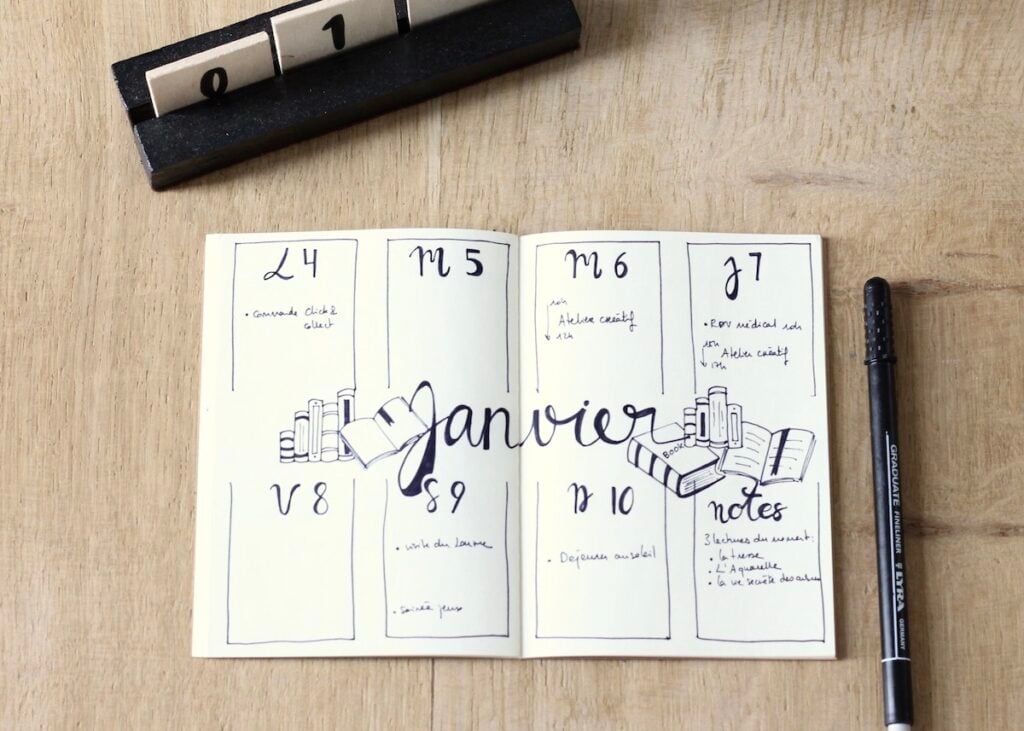 0 1
L 4
• Commande Click &
collect
M 5
M 6
10h
Atelier créatif
12h
J 7
• RDV médical 10h
Atelier créatif
17h
Janvier
BOOK
V 8
S 9
• visite du Louvre
• soirée jeux
D 10
• Déjeuner au soleil
notes
3 lectures du moment :
• la tresse
• L'Aquarelle
• la vie secrète des
GRADUATE FINELINER LYRA GERMANY